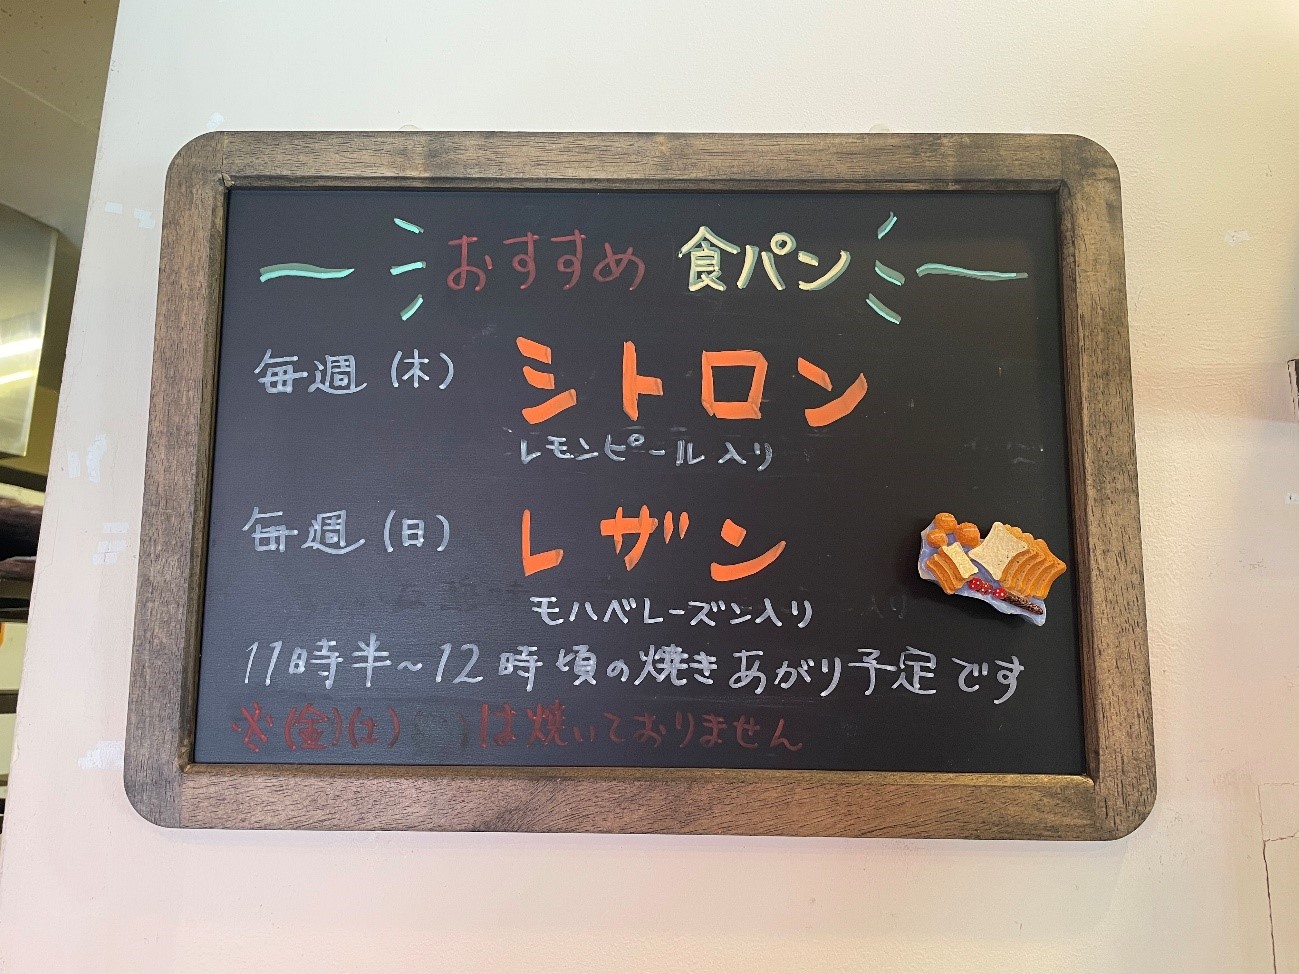 おすすめ 食パン
毎週(木) シトロン
レモンピール入り
毎週(日) レザン
モハベレーズン入り
11時半~12時頃の焼きあがり予定です
※(金)(土) は焼いておりません